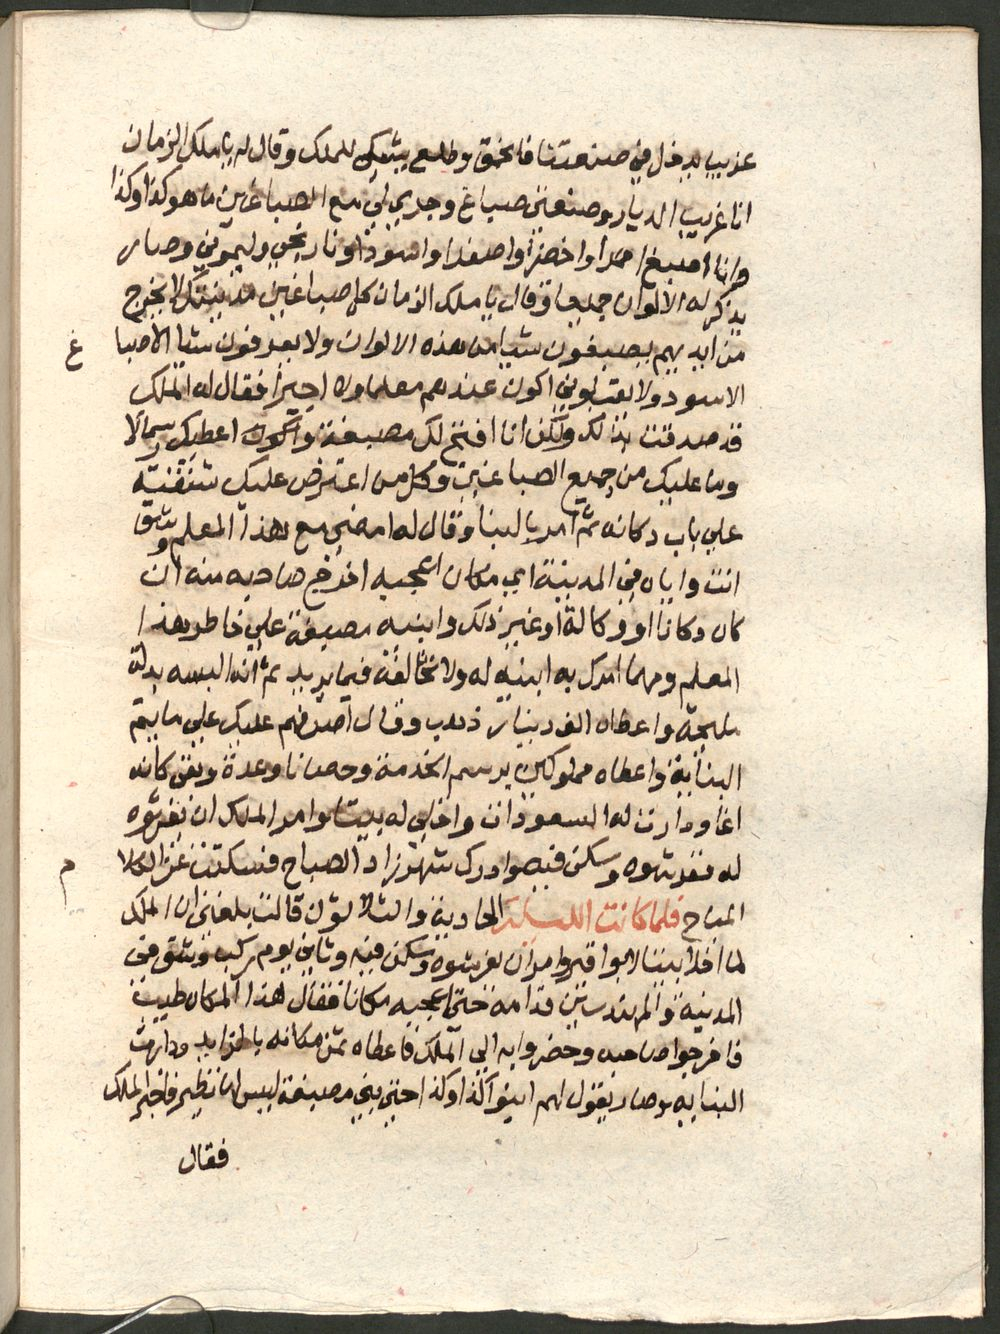 غريب يدخل في صنعتنا فانحمق وطلع يشتكي للملك وقال له يا ملك الزمان
انا غريب الديار وصنعتي صباغ وجري لي مع الصباغين ما هو كذا وكذا
وانا اصبغ احمرا واخضرا واصفرا واسودا ونارنجي وليموني وصار
يذكر له الالوان جميعا وقال يا ملك الزمان كل صباغين مدينتك لا يخرج
من ايديهم يصبغون شيا من هذه الالوان ولا يعرفون شيا الا صبا غ
الاسود ولا يقبلوني اكون عندهم معلما ولا اجيرا فقال له الملك
قد صدقت بذلك ولكن انا افتح لك مصبغة واكون اعطيك رسمالا
وما عليك من جميع الصباغين وكل من اعترض عليك شنقته
علي باب دكانه ثم امر بالبنا وقال له امضي مع هذا المعلم وشق
انت واياه في المدينة اي مكان اعجبه اخرج صاحبه منه ان
كان دكانا او وكالة او غير ذلك وابنيه مصبغة علي خاطر هذا
المعلم ومهما امرك به ابنيه له ولا تخالفه فيما يريد ثم انه البسه بدلة
مليحة واعطاه الف دينار ذهب وقال اصرفهم عليك علي ما يتم
البناية واعطاه مملوكين برسم الخدمة وحصانا وعدة وبقي كانه
اغا ودارت له السعودات واخلي له بيتا وامر الملك ان يفرشوه
له ففرشوه وسكن فيه وادرك شهرزاد الصباح فسكتت عن الكلا م
المباح فلما كانت الليلة الحادية والثلاثون قالت بلغني ان الملك
لما اخلا بيتا لابو اقير وامر ان يفرشوه وسكن فيه وثاني يوم ركب وشق في
المدينة والمهندسين قدامه حتي اعجبه مكانا فقال هذا المكان طيب
فاخرجوا صاحبه وحضروا به الي الملك فاعطاه ثمن مكانه بالزايد ودارت
البنايه وصار يقول لهم ابنوا كذا وكذا حتي بني مصبغة ليس لها نظير فاخبر الملك
فقال